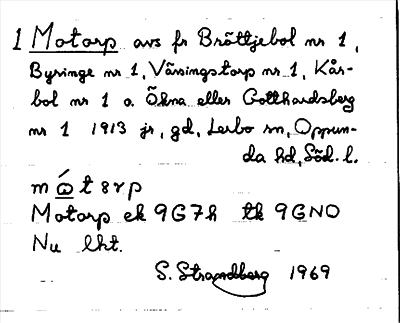 1 Motorp avs fr Bröttjebol nr 1,
Byringe nr 1, Väringstorp nr 1, Kår-
bol nr 1 o. Ökna eller Gotthardsberg
nr 1 1913 jr, gd, Lerbo sn, Oppun-
da hd, Söd. l.
Motorp ek 9G7h tk 9GNO
Nu lht.
S. Strandberg 1969